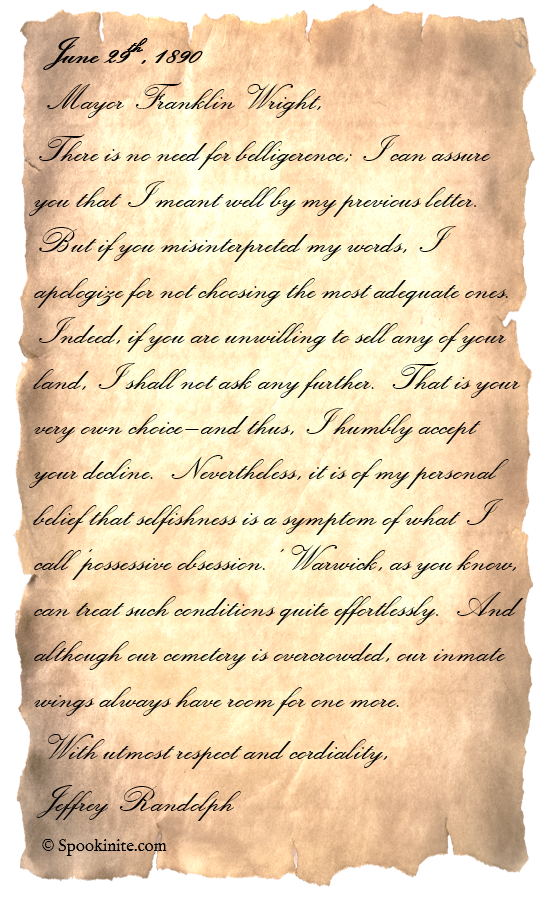 June 29th, 1890
Mayor Franklin Wright,
There is no need for belligerence; I can assure
you that I meant well by my previous letter.
But if you misinterpreted my words, I
apologize for not choosing the most adequate ones.
Indeed, if you are unwilling to sell any of your
land, I shall not ask any further. That is your
very own choice—and thus, I humbly accept
your decline. Nevertheless, it is of my personal
belief that selfishness is a symptom of what I
call 'possessive obsession.' Warwick, as you know,
can treat such conditions quite effortlessly. And
although our cemetery is overcrowded, our inmate
wings always have room for one more.
With utmost respect and cordiality,
Jeffrey Randolph
© Spookinite.com